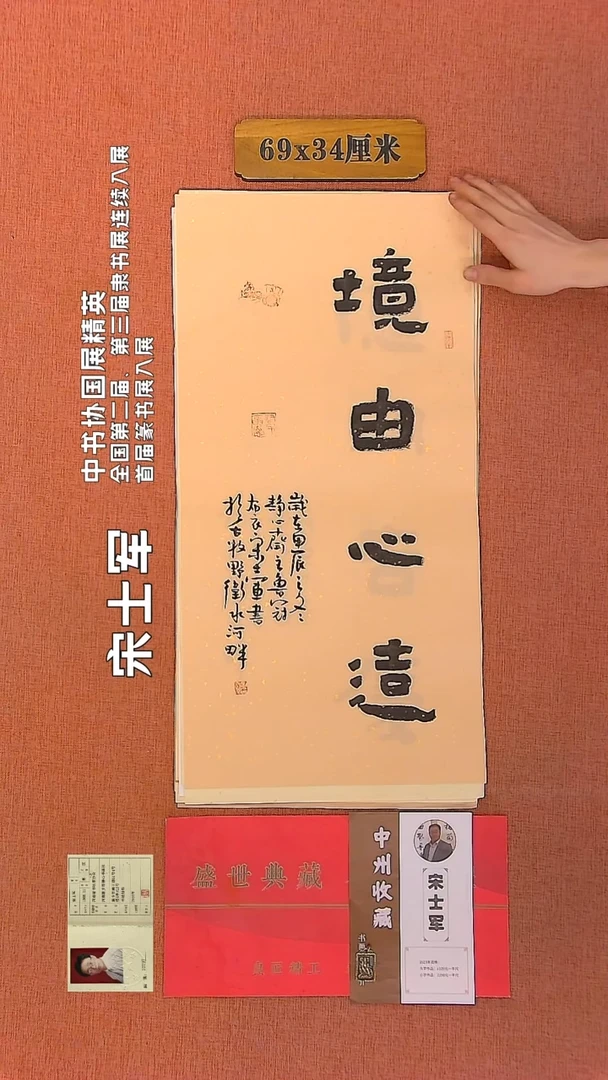 69x34厘米
境由心造
岁在甲辰之冬
静心斋主鲁冠
布衣宋士军书
于古牧野卫水河畔
中书协国展精英
全国第二届、第三届隶书展连续入展
首届篆书展入展
宋士军
盛世典藏
中州收藏
宋士军